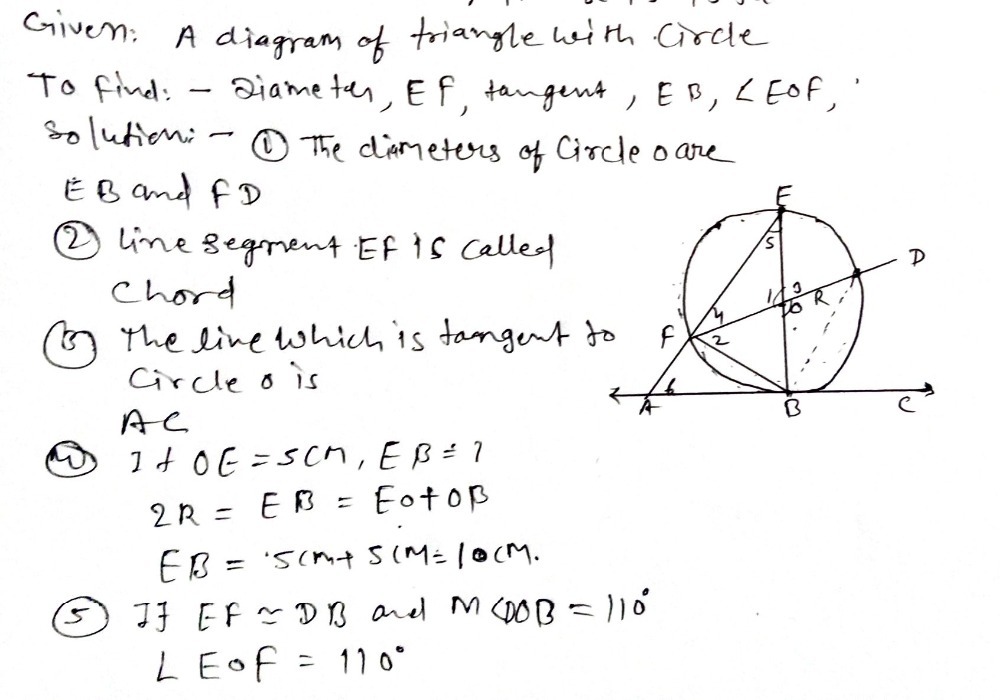 Given: A diagram of triangle with Circle
To find: - Diameter, EF, tangent, EB, ∠EOF,
Solution: - ① The diameters of Circle O are
EB and FD
② Line Segment EF is called
Chord
③ The line which is tangent to
Circle O is
AC
④ If OE = 5CM, EB = ?
2R = EB = EO+OB
EB = 5CM+5CM=10CM.
⑤ If EF ≃ DB and M∠DOB = 110°
∠EOF = 110°
E
5
D
1 3
O R
4
F 2
6
A B C